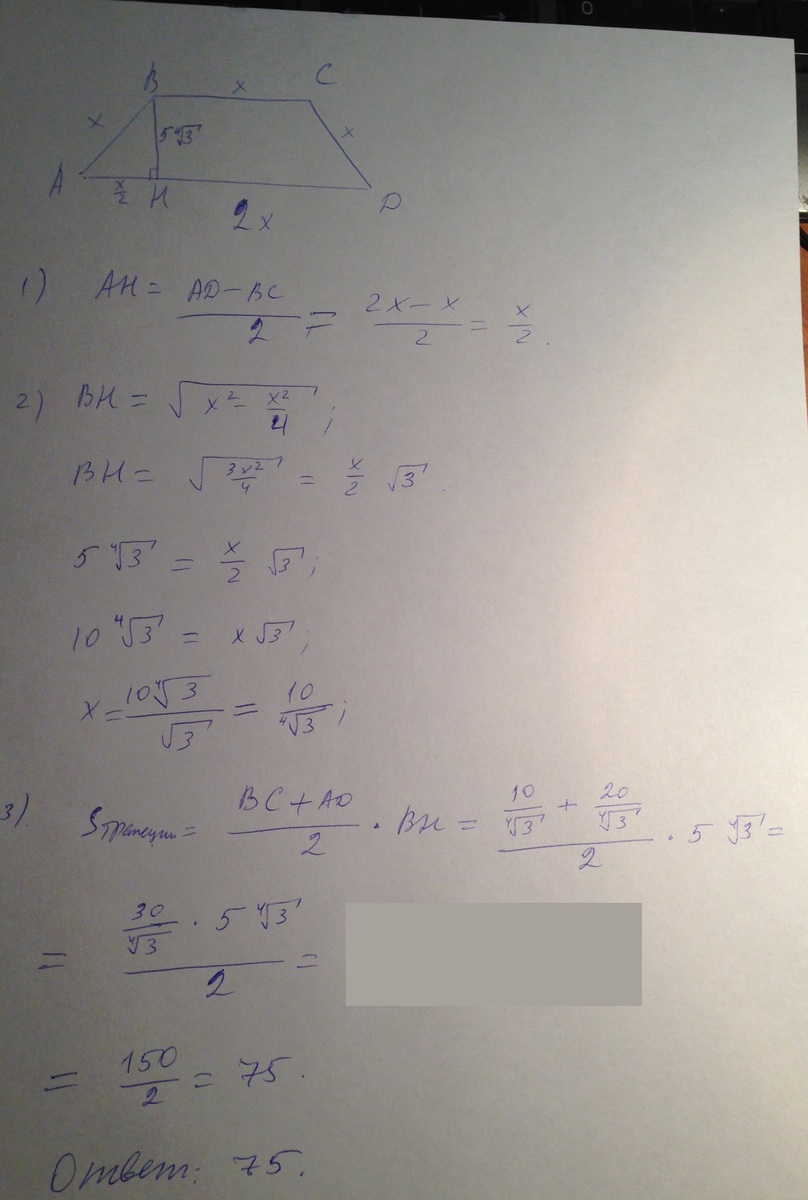 B x C
x 5∜3 x
A x/2 H D
2x
1) AH = (AD − BC)/2 = (2x − x)/2 = x/2.
2) BH = √(x² − x²/4);
BH = √(3x²/4) = x/2 √3.
5 ∜3 = x/2 √3;
10 ∜3 = x √3;
x = 10∜3/√3 = 10/∜3;
3). Sтрапеции = (BC + AD)/2 · BH = (10/∜3 + 20/∜3)/2 · 5 ∜3 =
= (30/∜3 · 5 ∜3)/2 =
= 150/2 = 75.
Ответ: 75.